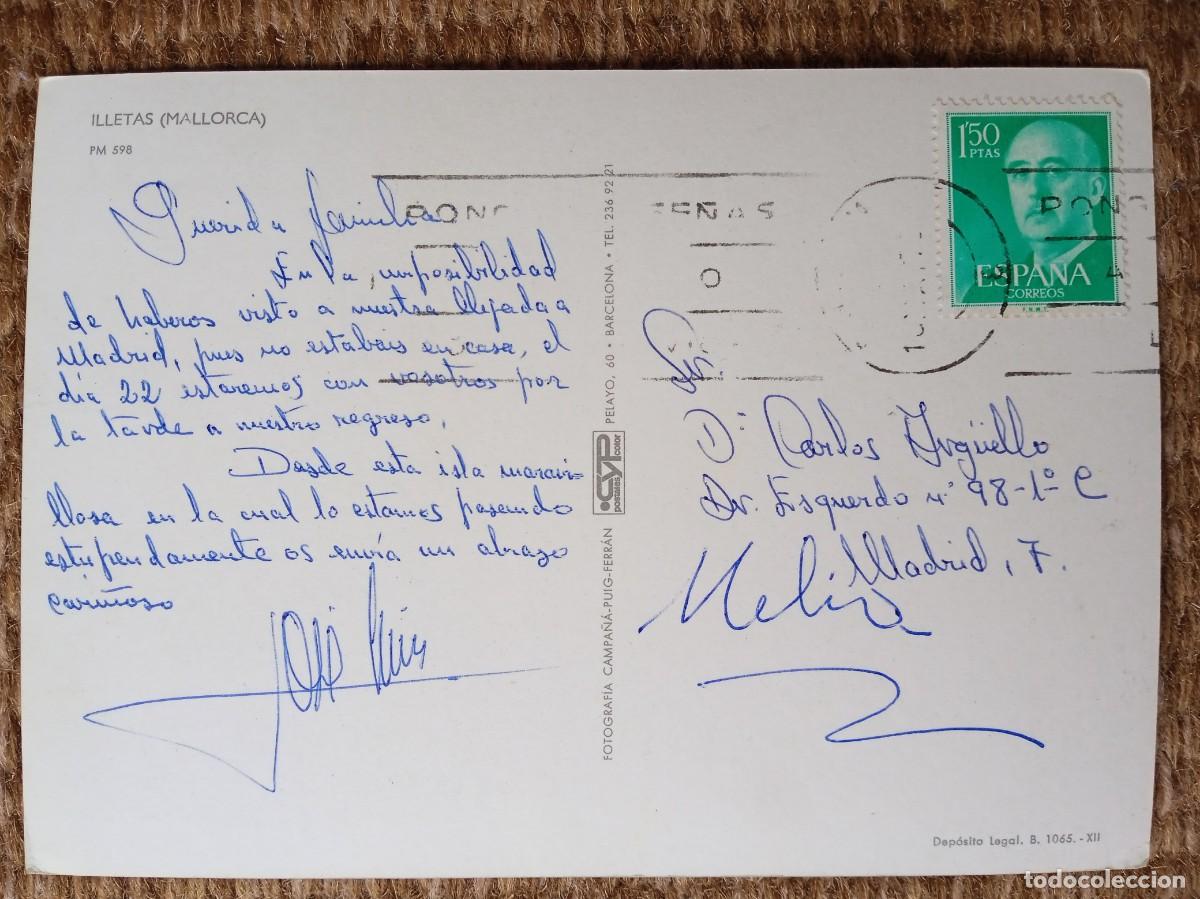 ILLETAS (MALLORCA)
PM 598
Querida familia
En la imposibilidad
de haberos visto a nuestra llegada a
Madrid, pues no estabais en casa, el
día 22 estaremos con vosotros por
la tarde a nuestro regreso.
Desde esta isla maravi-
llosa en la cual lo estamos pasando
estupendamente os envía un abrazo
cariñoso
José Luis
FOTOGRAFÍA CAMPAÑÁ-PUIG-FERRÁN
CYP
postales color
PELAYO, 60 • BARCELONA • TEL. 236 92 21
1'50
PTAS
ESPAÑA
CORREOS
F.N.M.T.
PONG
SEÑAS
O
PONG
4
Sr.
D. Carlos Argüello
Dr. Esquerdo nº 98-1º C
Madrid, 7.
Depósito Legal. B. 1065. - XII
todocoleccion